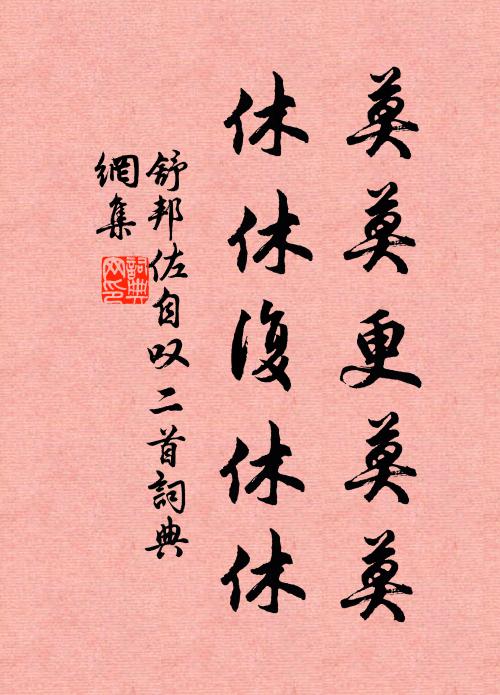 莫莫更莫莫
休休復休休
舒邦佐自叹二首詞典
網集
詞典
网印